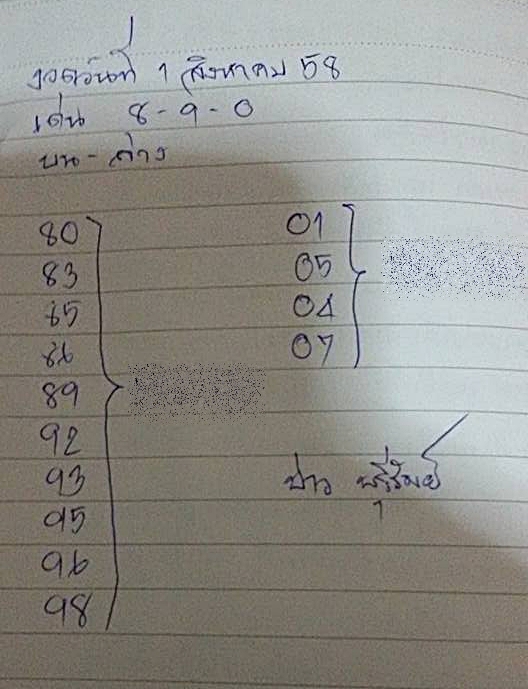 งวดวันที่ 1 สิงหาคม 58
เด่น 8-9-0
บน-ล่าง
80
83
85
86
89
92
93
95
96
98
01
05
04
07